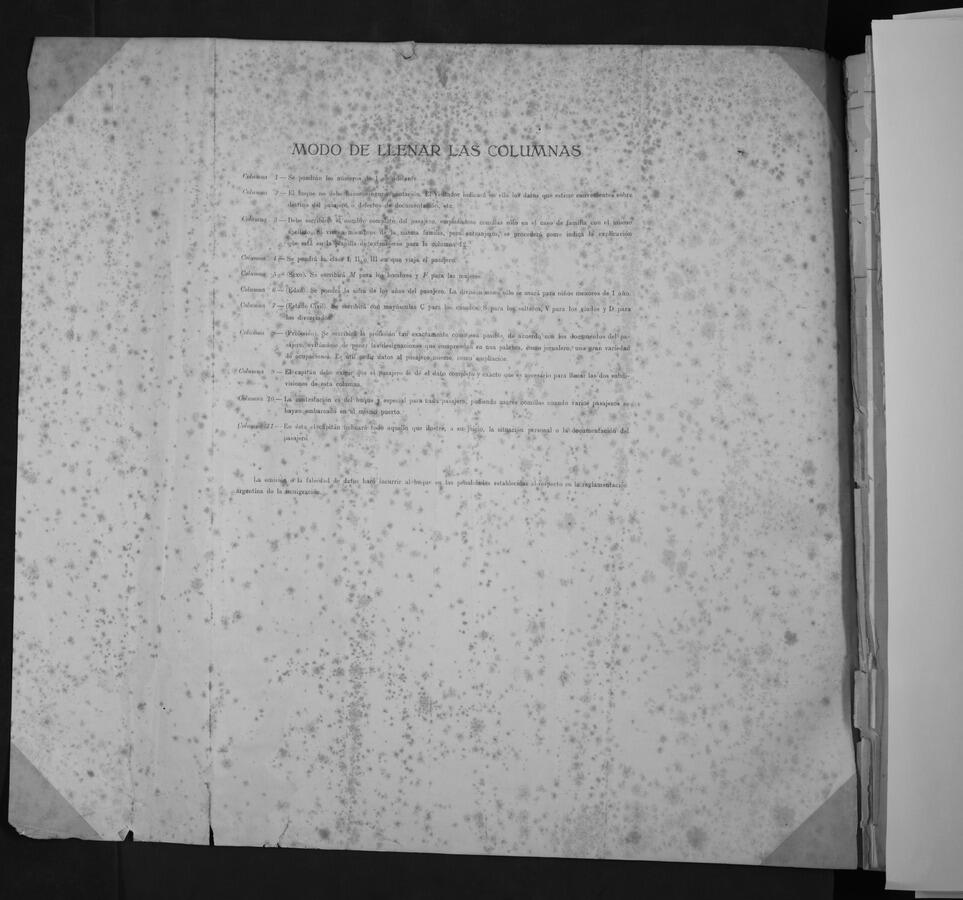 MODO DE LLENAR LAS COLUMNAS
Columna 1 — Se pondrán los números de 1 en adelante.
Columna 2 — El buque no debe hacer ninguna anotación. El Visitador indicará en ella los datos que estime convenientes sobre
destino del pasajero o defectos de documentación, etc.
Columna 3 — Debe escribirse el nombre completo del pasajero, empleándose comillas sólo en el caso de familia con el mismo
apellido. Si viajan miembros de la misma familia, pero extranjeros, se procederá como indica la explicación
que está en la planilla de extranjeros para la columna
Columna 4 — Se pondrá la clase I, II o III en que viaja el pasajero.
Columna 5 — (Sexo). Se escribirá M para los hombres y F para las mujeres.
Columna 6 — (Edad). Se pondrá la cifra de los años del pasajero. La división meses sólo se usará para niños menores de 1 año.
Columna 7 — (Estado Civil). Se escribirá con mayúsculas C para los casados, S para los solteros, V para los viudos y D para
los divorciados.
Columna 8 — (Profesión). Se escribirá la profesión tan exactamente como sea posible, de acuerdo con los documentos del pa-
sajero, evitándose de poner las designaciones que comprendan en una palabra, como jornalero, una gran variedad
de ocupaciones. Es útil pedir datos al pasajero mismo, como ampliación.
Columna 9 — El capitán debe exigir que el pasajero le dé el dato completo y exacto que es necesario para llenar las dos subdi-
visiones de esta columna.
Columna 10 — La contestación es del buque y especial para cada pasajero, pudiendo usarse comillas cuando varios pasajeros se
hayan embarcado en el mismo puerto.
Columna 11 — En ésta el capitán indicará todo aquello que ilustre, a su juicio, la situación personal o la documentación del
pasajero.
La omisión o la falsedad de datos hará incurrir al buque en las penalidades establecidas al respecto en la reglamentación
argentina de la inmigración.